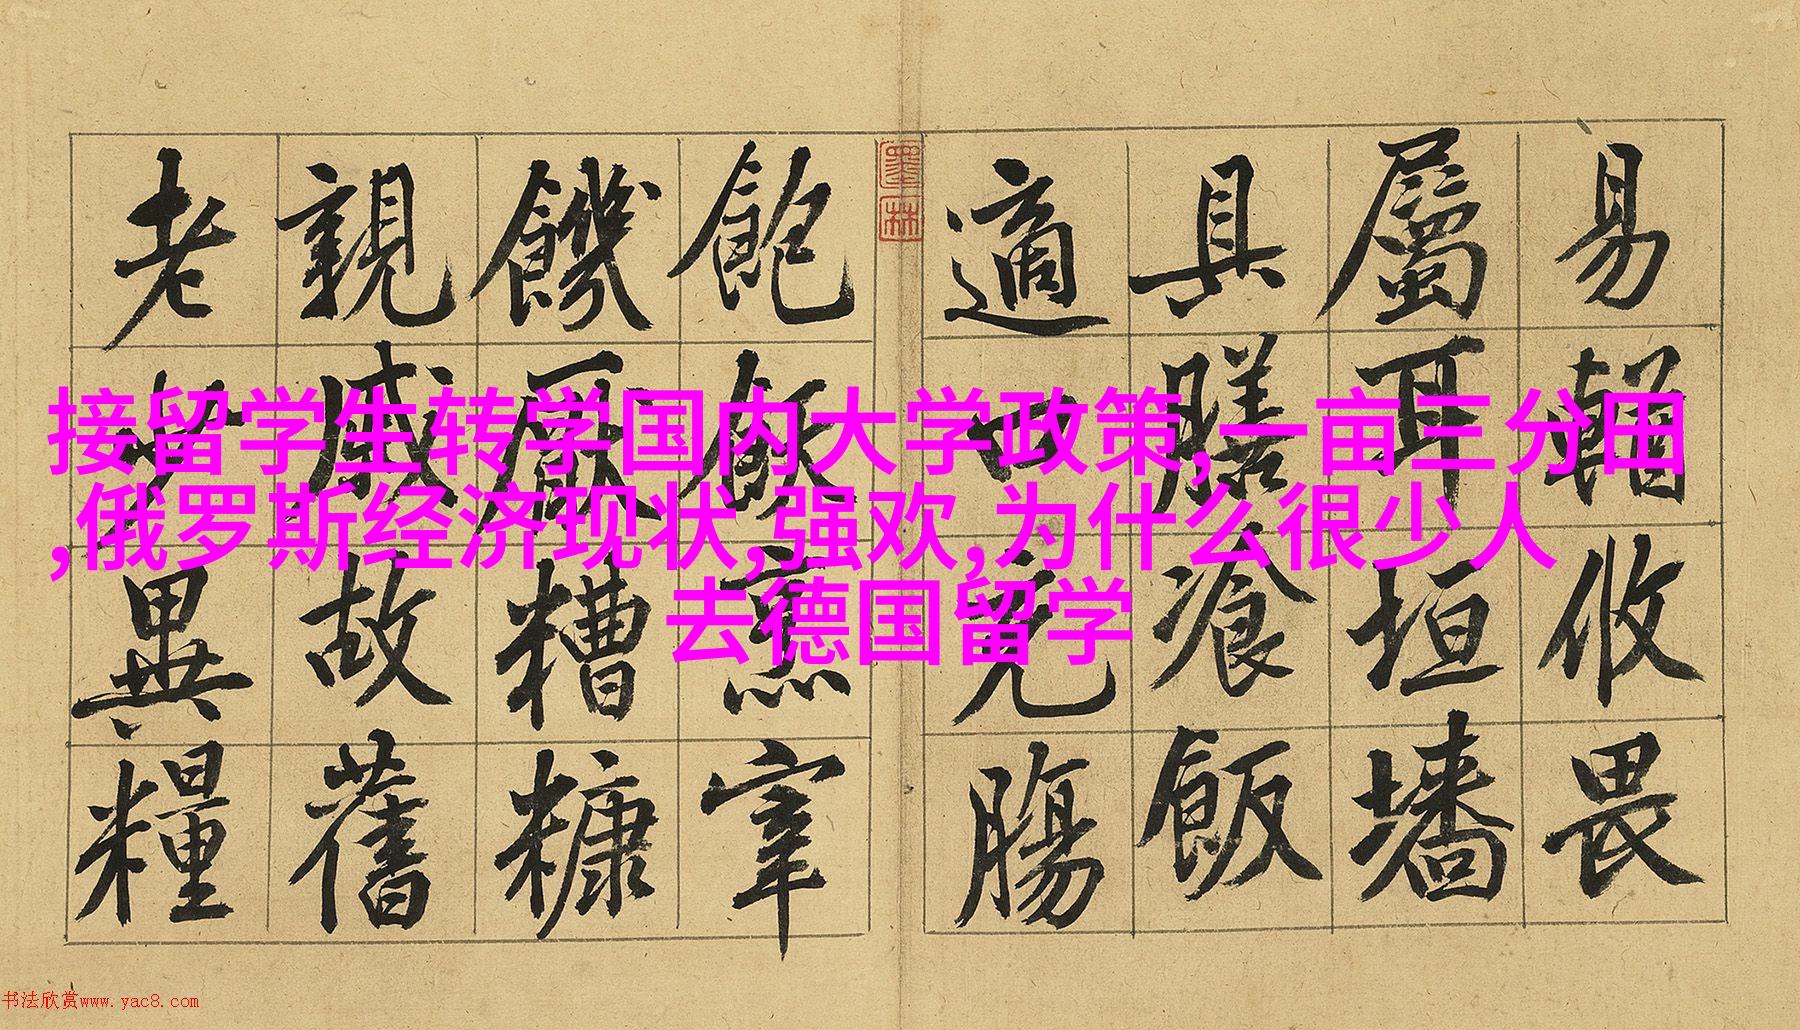 接留学生转学国内大学政策,一亩三分田
,俄罗斯经济现状,强欢,为什么很少人
去德国留学
易輶攸畏
屬耳垣墻
具膳飡飯
適口充腸
墨林
飽飫烹宰
饑厭糟糠
親戚故舊
老少異糧
书法欣赏www.yac8.com